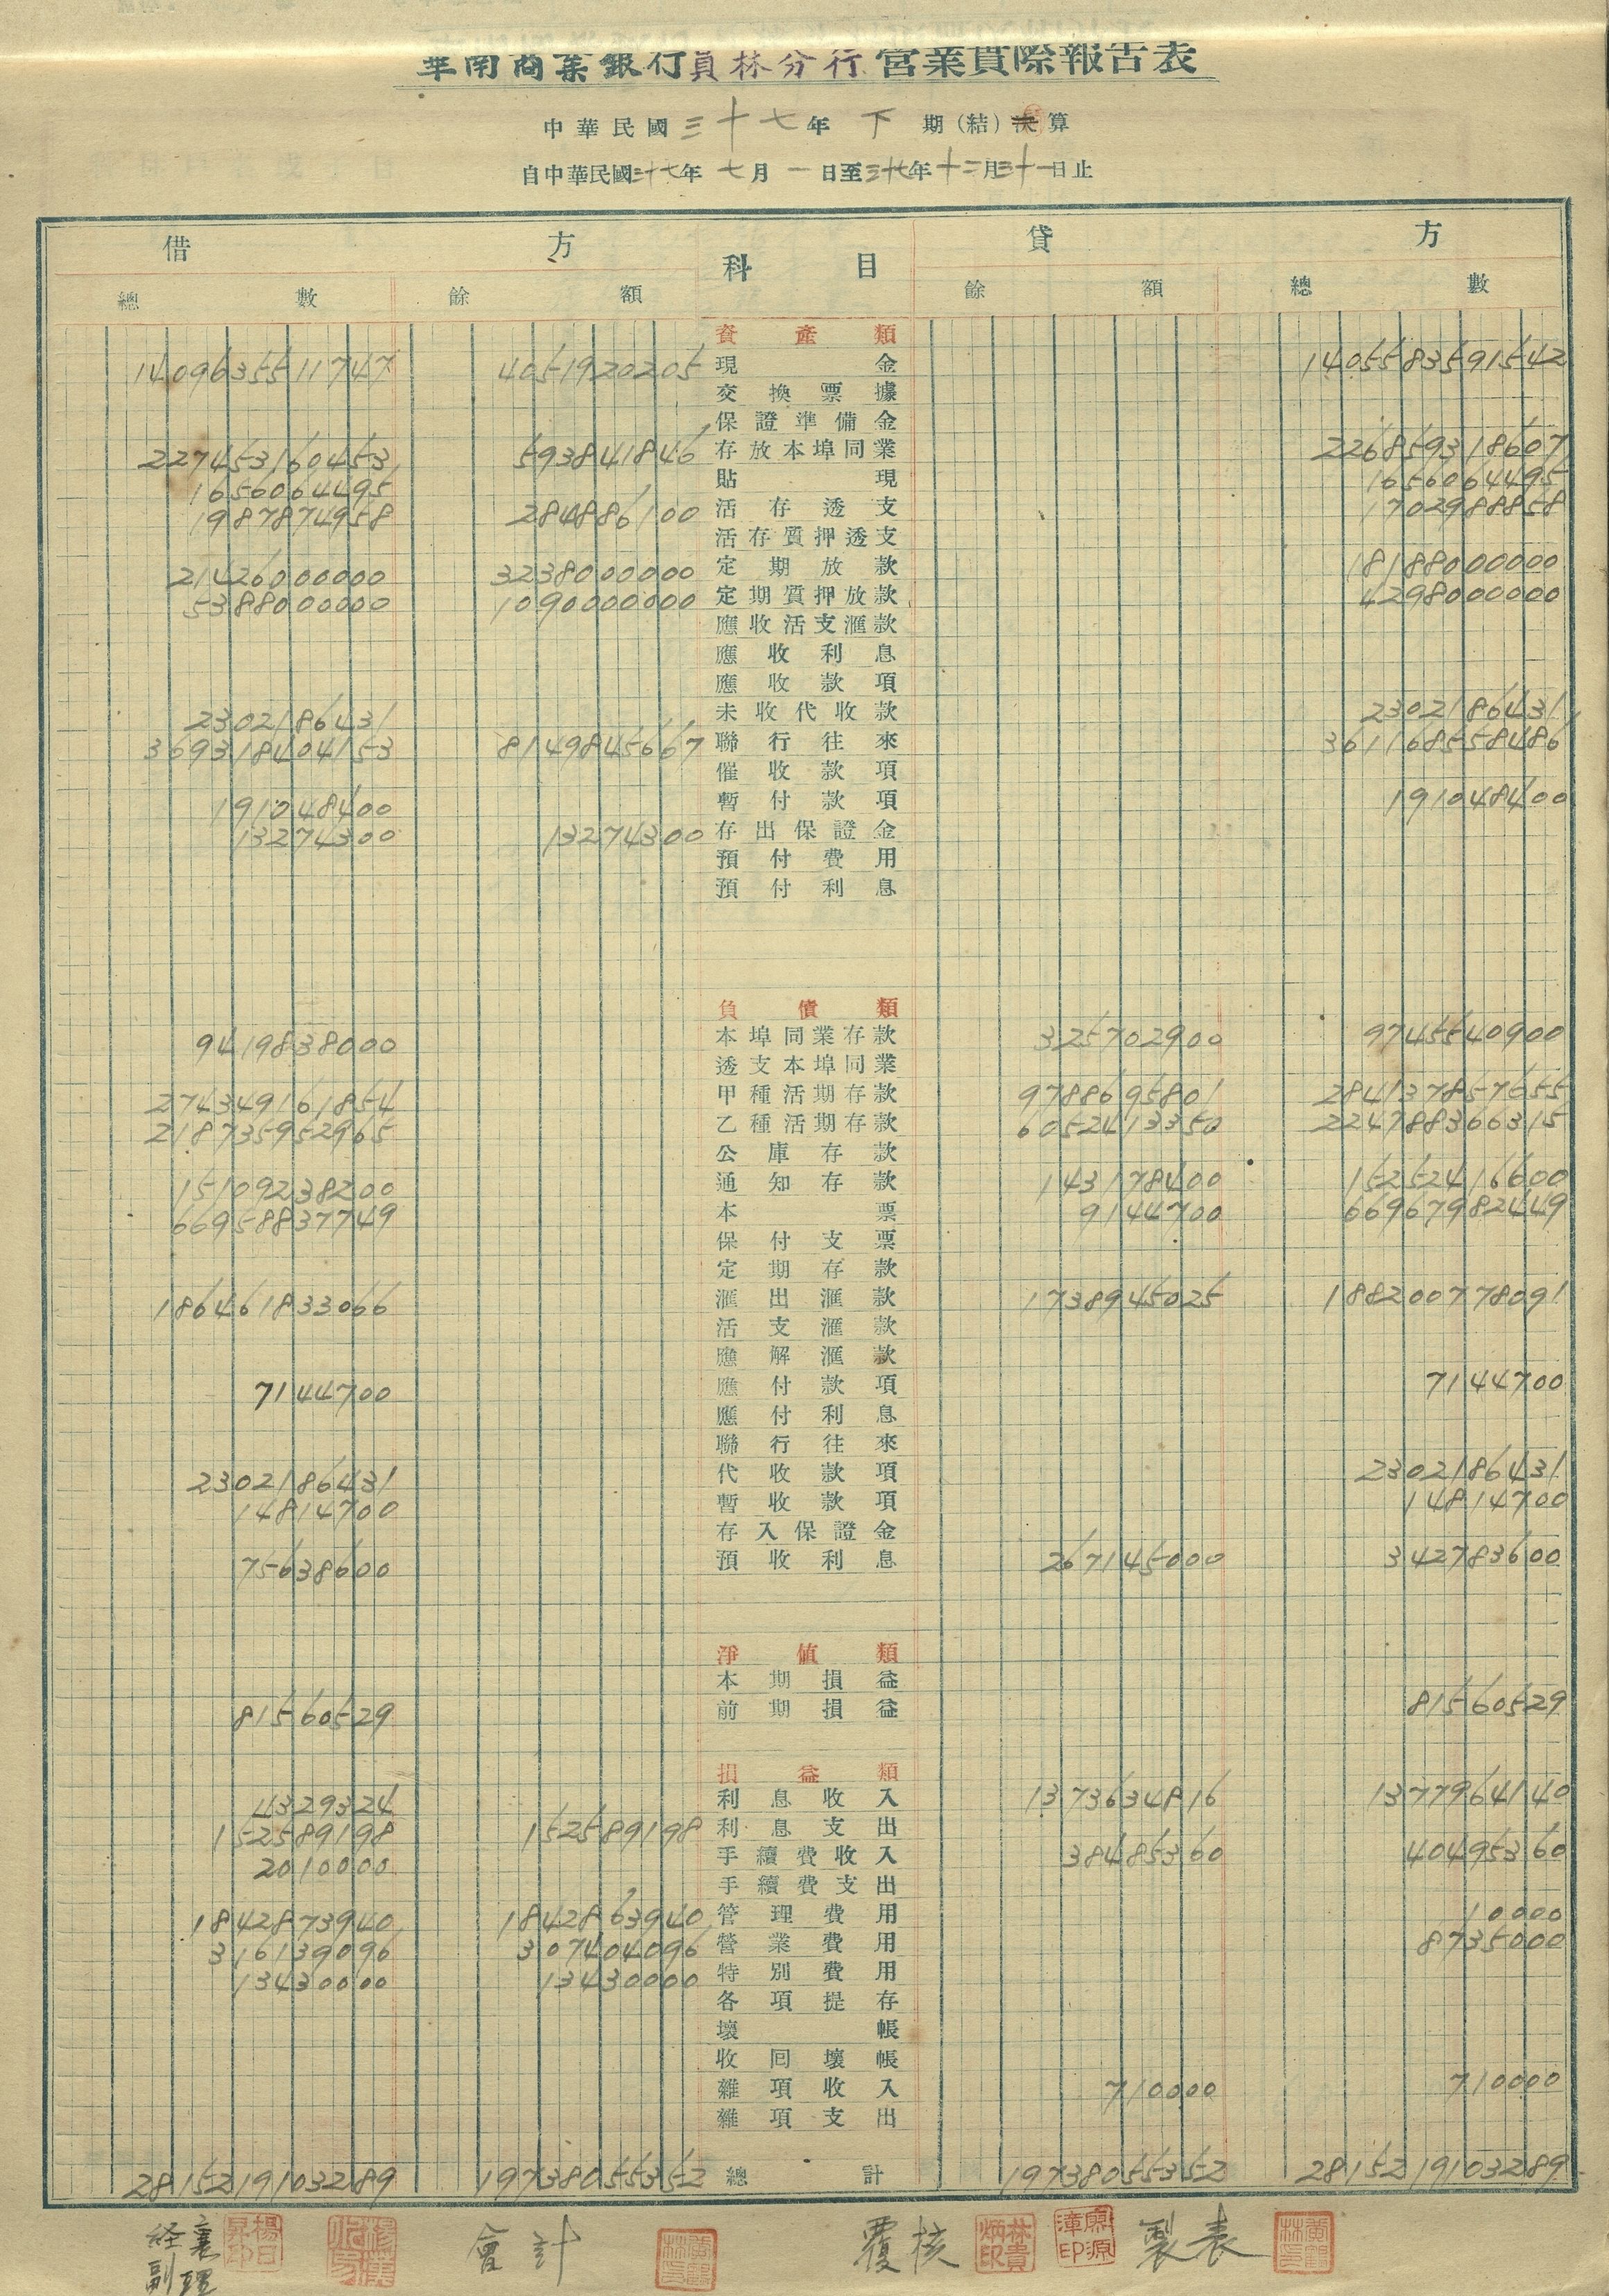 華南商業銀行員林分行營業實際報告表
中華民國三十七年 下 期(結)決算
自中華民國三十七年 七月 一 日至三十七年十二月三十一日止
借 方 科 目 貸 方
總 數 餘 額 餘 額 總 數
資產類
1409635511747 4051920205 現金 1405583591542
交換票據
保證準備金
227453160453 593841846 存放本埠同業 226859318607
1656064495 貼現 1656064495
1987874958 284886100 活存透支 1702988858
活存質押透支
21426000000 3238000000 定期放款 18188000000
5388000000 1090000000 定期質押放款 4298000000
應收活支滙款
應收利息
應收款項
2302186431 未收代收款 2302186431
369318404153 8149845667 聯行往來 361168558486
催收款項
191048400 暫付款項 191048400
13274300 13274300 存出保證金
預付費用
預付利息
負債類
9419838000 本埠同業存款 325702900 9745540900
透支本埠同業
274349161854 甲種活期存款 9788695801 284137857655
218735952965 乙種活期存款 6052413350 224788366315
公庫存款
15109238200 通知存款 143178400 15252416600
66958837749 本票 9144700 66967982449
保付支票
定期存款
186461833066 滙出滙款 1738945025 188200778091
活支滙款
應解滙款
7144700 應付款項 7144700
應付利息
聯行往來
2302186431 代收款項 2302186431
14814700 暫收款項 14814700
存入保證金
75638600 預收利息 267145000 342783600
淨值類
本期損益
81560529 前期損益 81560529
損益類
4329324 利息收入 1373634816 1377964140
152589198 152589198 利息支出
2010000 手續費收入 38485360 40495360
手續費支出
1842873940 1842863940 管理費用 10000
316139096 307404096 營業費用 8735000
13430000 13430000 特別費用
各項提存
壞帳
收回壞帳
710000 雜項收入 710000
雜項支出
2815219103289 19738055352 總計 19738055352 2815219103289
経襄
副理 會計 覆核 製表